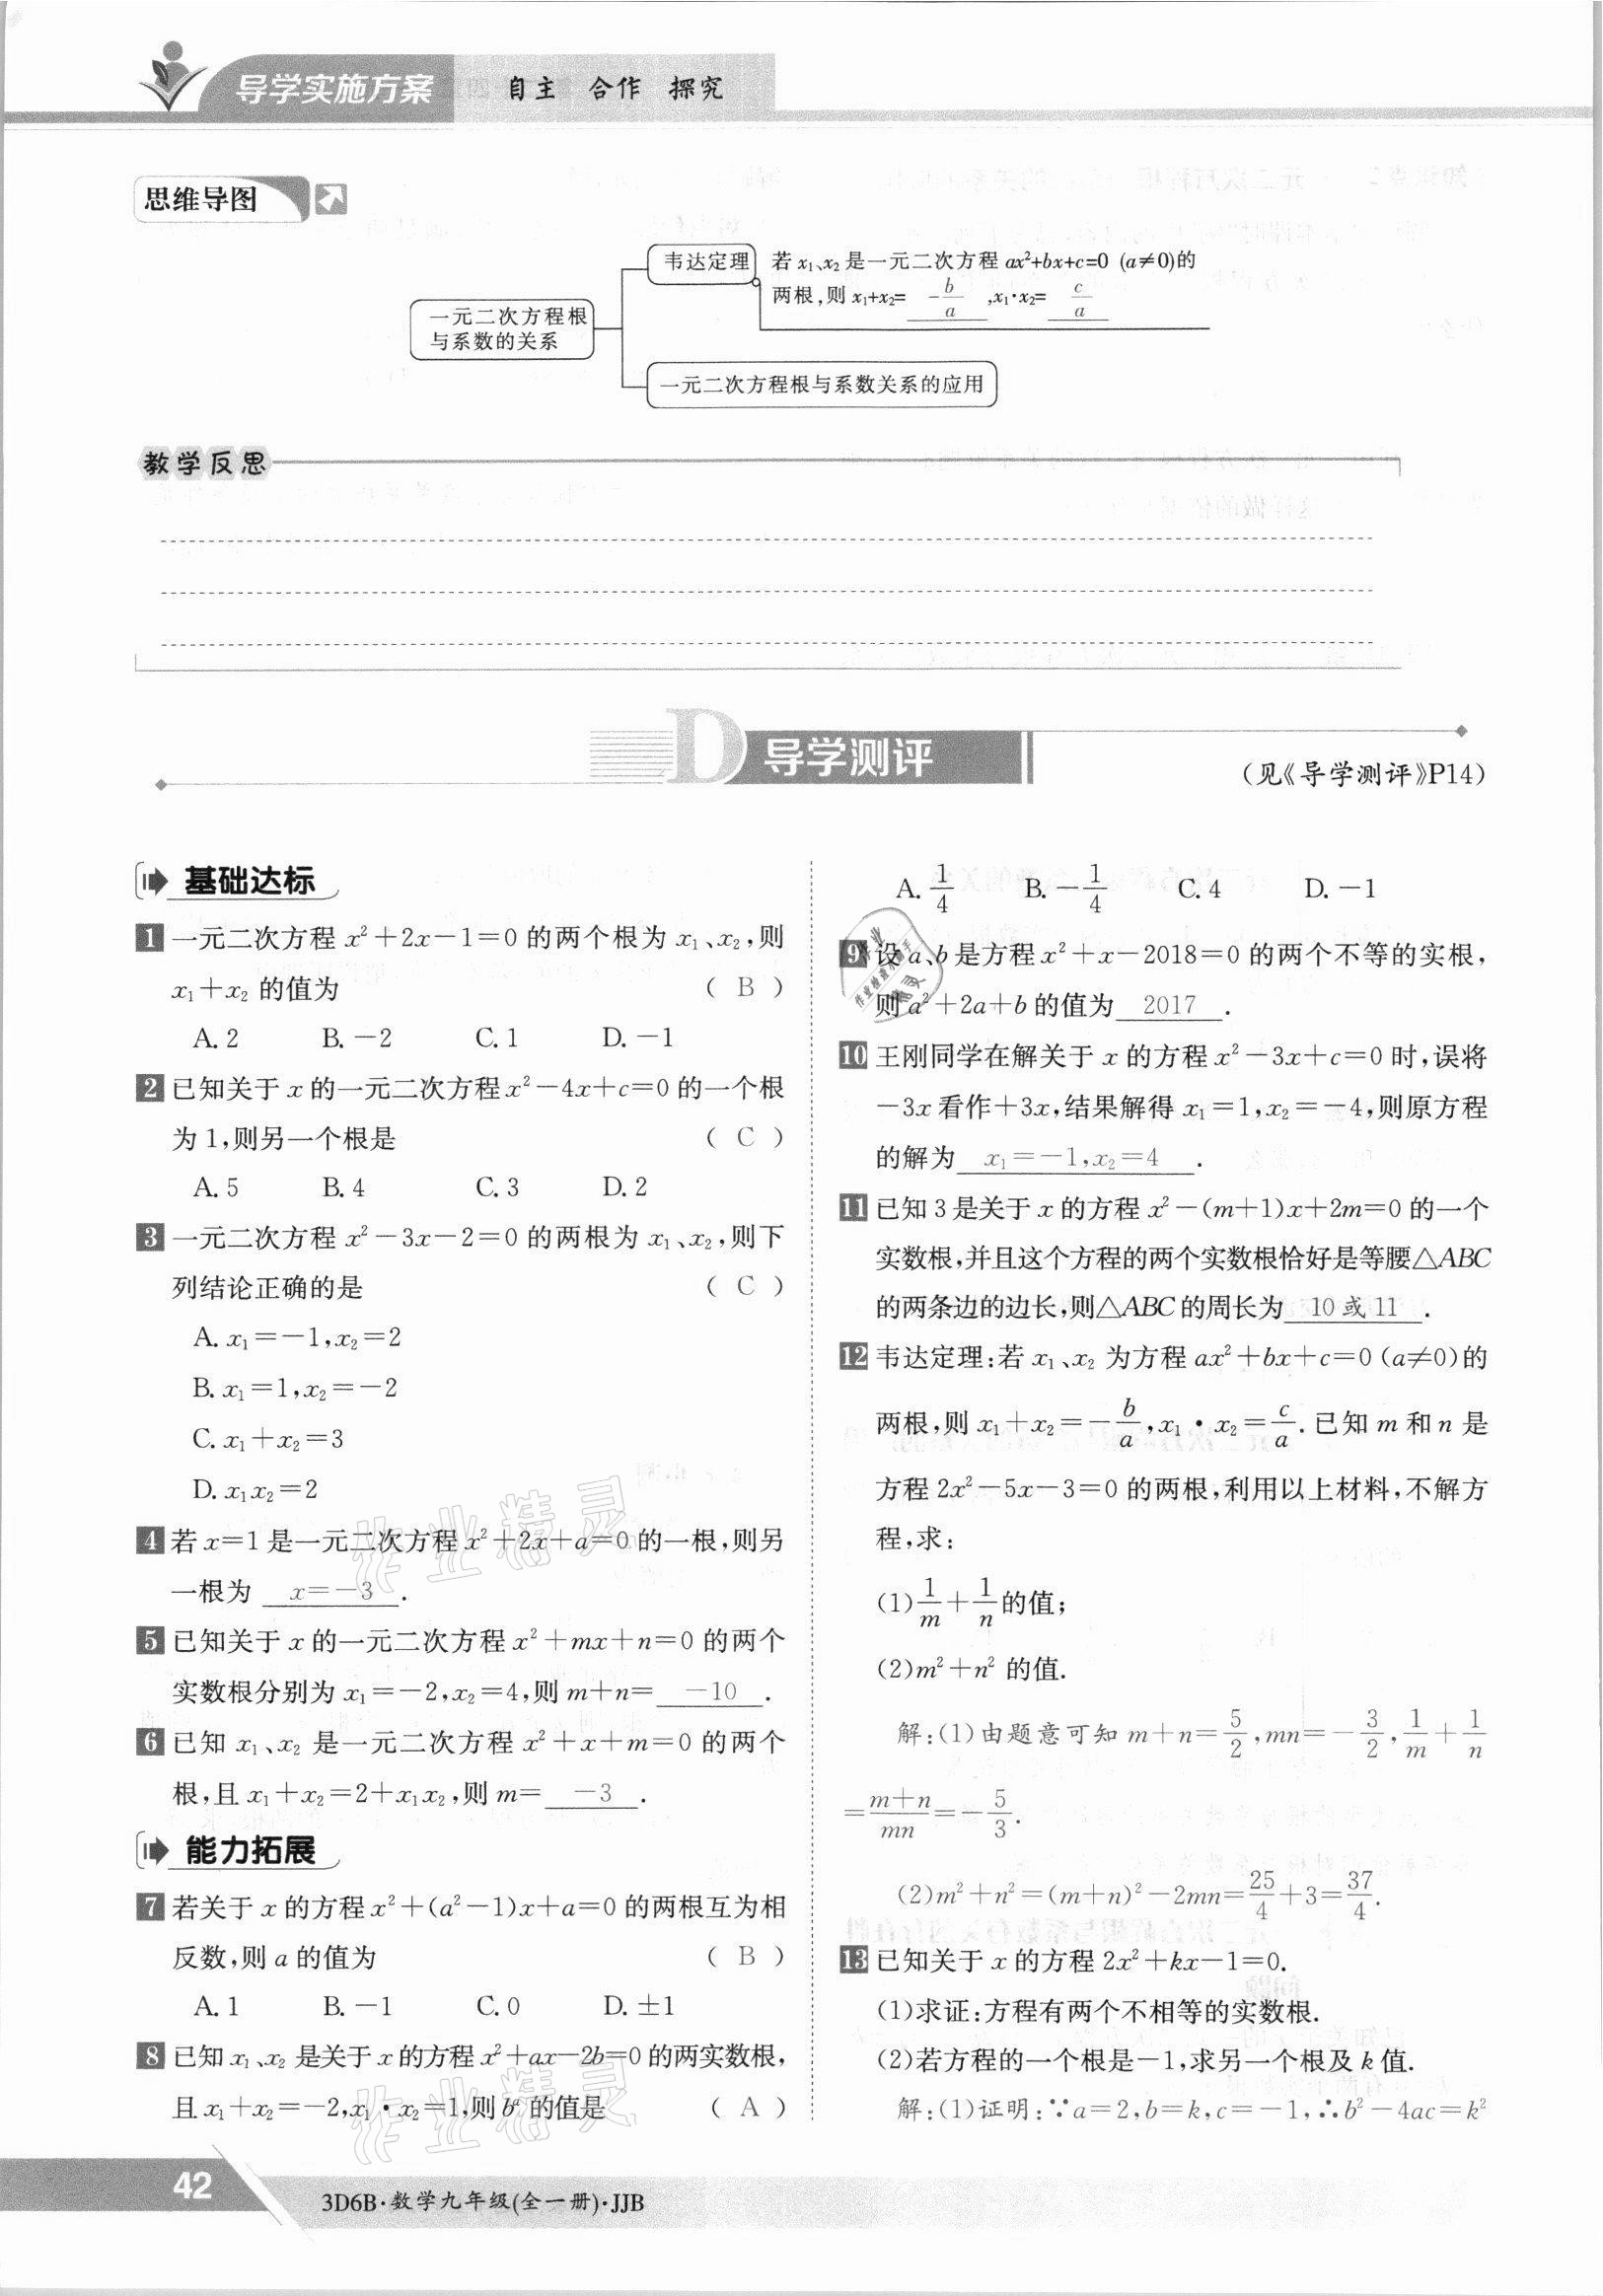 导学实施方案 自主 合作 探究
思维导图
韦达定理
若x₁、x₂是一元二次方程ax²+bx+c=0 (a≠0)的
两根,则x₁+x₂= -b/a ,x₁·x₂= c/a
一元二次方程根
与系数的关系
一元二次方程根与系数关系的应用
教学反思
D 导学测评
(见《导学测评》P14)
基础达标
1 一元二次方程 x²+2x-1=0 的两个根为 x₁、x₂,则
x₁+x₂ 的值为 ( B )
A. 2 B. -2 C. 1 D. -1
2 已知关于 x 的一元二次方程 x²-4x+c=0 的一个根
为 1,则另一个根是 ( C )
A. 5 B. 4 C. 3 D. 2
3 一元二次方程 x²-3x-2=0 的两根为 x₁、x₂,则下
列结论正确的是 ( C )
A. x₁=-1,x₂=2
B. x₁=1,x₂=-2
C. x₁+x₂=3
D. x₁x₂=2
4 若 x=1 是一元二次方程 x²+2x+a=0 的一根,则另
一根为 x=-3 .
5 已知关于 x 的一元二次方程 x²+mx+n=0 的两个
实数根分别为 x₁=-2,x₂=4,则 m+n= -10 .
6 已知 x₁、x₂ 是一元二次方程 x²+x+m=0 的两个
根,且 x₁+x₂=2+x₁x₂,则 m= -3 .
能力拓展
7 若关于 x 的方程 x²+(a²-1)x+a=0 的两根互为相
反数,则 a 的值为 ( B )
A. 1 B. -1 C. 0 D. ±1
8 已知 x₁、x₂ 是关于 x 的方程 x²+ax-2b=0 的两实数根,
且 x₁+x₂=-2,x₁·x₂=1,则 bᵃ 的值是 ( A )
A. 1/4 B. -1/4 C. 4 D. -1
9 设 a、b 是方程 x²+x-2018=0 的两个不等的实根,
则 a²+2a+b 的值为 2017 .
10 王刚同学在解关于 x 的方程 x²-3x+c=0 时,误将
-3x 看作+3x,结果解得 x₁=1,x₂=-4,则原方程
的解为 x₁=-1,x₂=4 .
11 已知 3 是关于 x 的方程 x²-(m+1)x+2m=0 的一个
实数根,并且这个方程的两个实数根恰好是等腰△ABC
的两条边的边长,则△ABC 的周长为 10 或 11 .
12 韦达定理:若 x₁、x₂ 为方程 ax²+bx+c=0 (a≠0)的
两根,则 x₁+x₂=-b/a,x₁·x₂=c/a.已知 m 和 n 是
方程 2x²-5x-3=0 的两根,利用以上材料,不解方
程,求:
(1)1/m+1/n的值;
(2)m²+n² 的值.
解:(1)由题意可知 m+n=5/2,mn=-3/2,1/m+1/n
=(m+n)/mn=-5/3.
(2)m²+n²=(m+n)²-2mn=25/4+3=37/4.
13 已知关于 x 的方程 2x²+kx-1=0.
(1)求证:方程有两个不相等的实数根.
(2)若方程的一个根是-1,求另一个根及 k 值.
解:(1)证明:∵a=2,b=k,c=-1,∴b²-4ac=k²
42
3D6B·数学九年级(全一册)·JJB
作业精灵
作业精灵